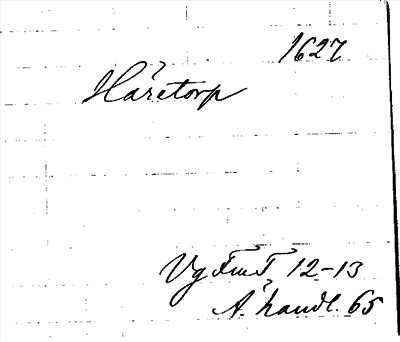 1627
Håretorp
Vg FmT 12-13
Å. handl. 65